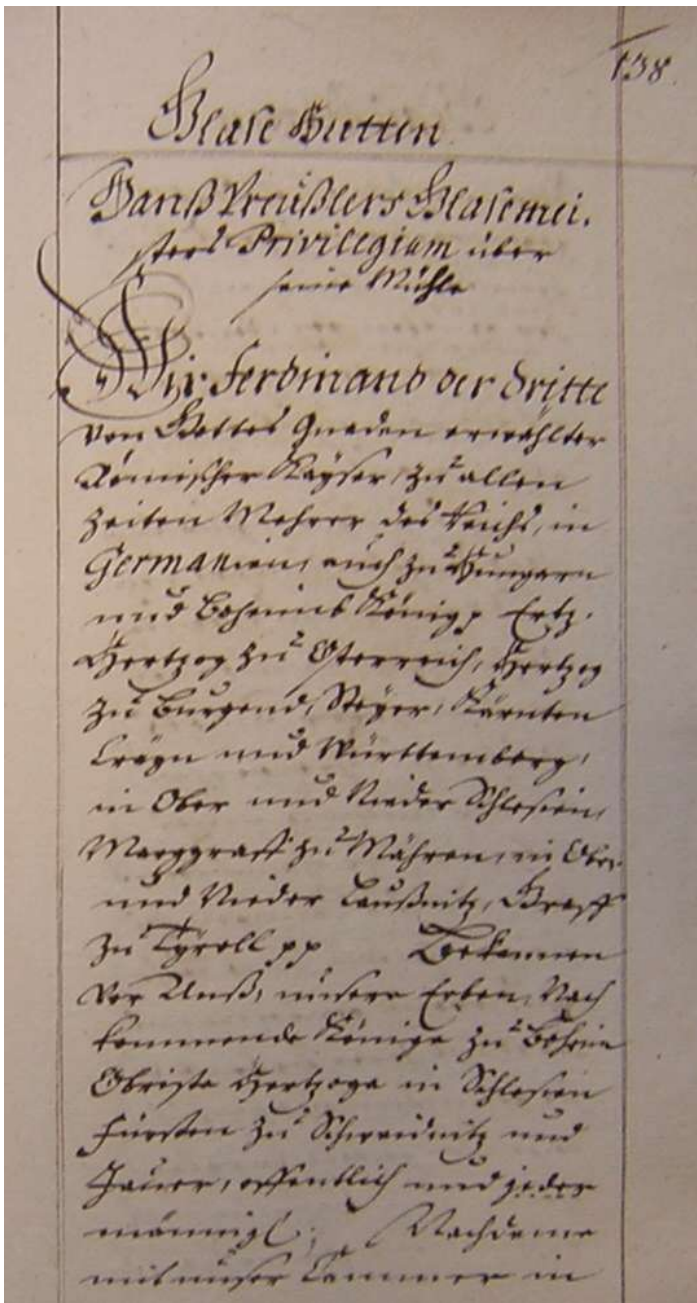 138.
Glase Hütten
Hanß Preüßlers Glasemei-
sters Privilegium über
seine Mühle
Wir Ferdinand der dritte
von Gottes Gnaden erwehlter
Römischer Kayser, zu allen
Zeiten Mehrer des Reichs, in
Germanien, auch zu Hungarn
und Boheimb König p Ertz-
Hertzog zu Osterreich, Hertzog
zu Burgund, Steyer, Kärnten
Crayn und Württemberg,
in Ober und Nieder Schlesien,
Marggraff zu Mähren, in Ober-
und Nieder Laußnitz, Graff
zu Tyroll pp Bekennen
vor Unß, unsere Erben, Nach
kommende Könige zu Boheim
Obriste Hertzoge in Schlesien
Fürsten zu Schweidnitz und
Jauer, offentlich und jeder
männigl: Nachdeme
mit unser Cammer in